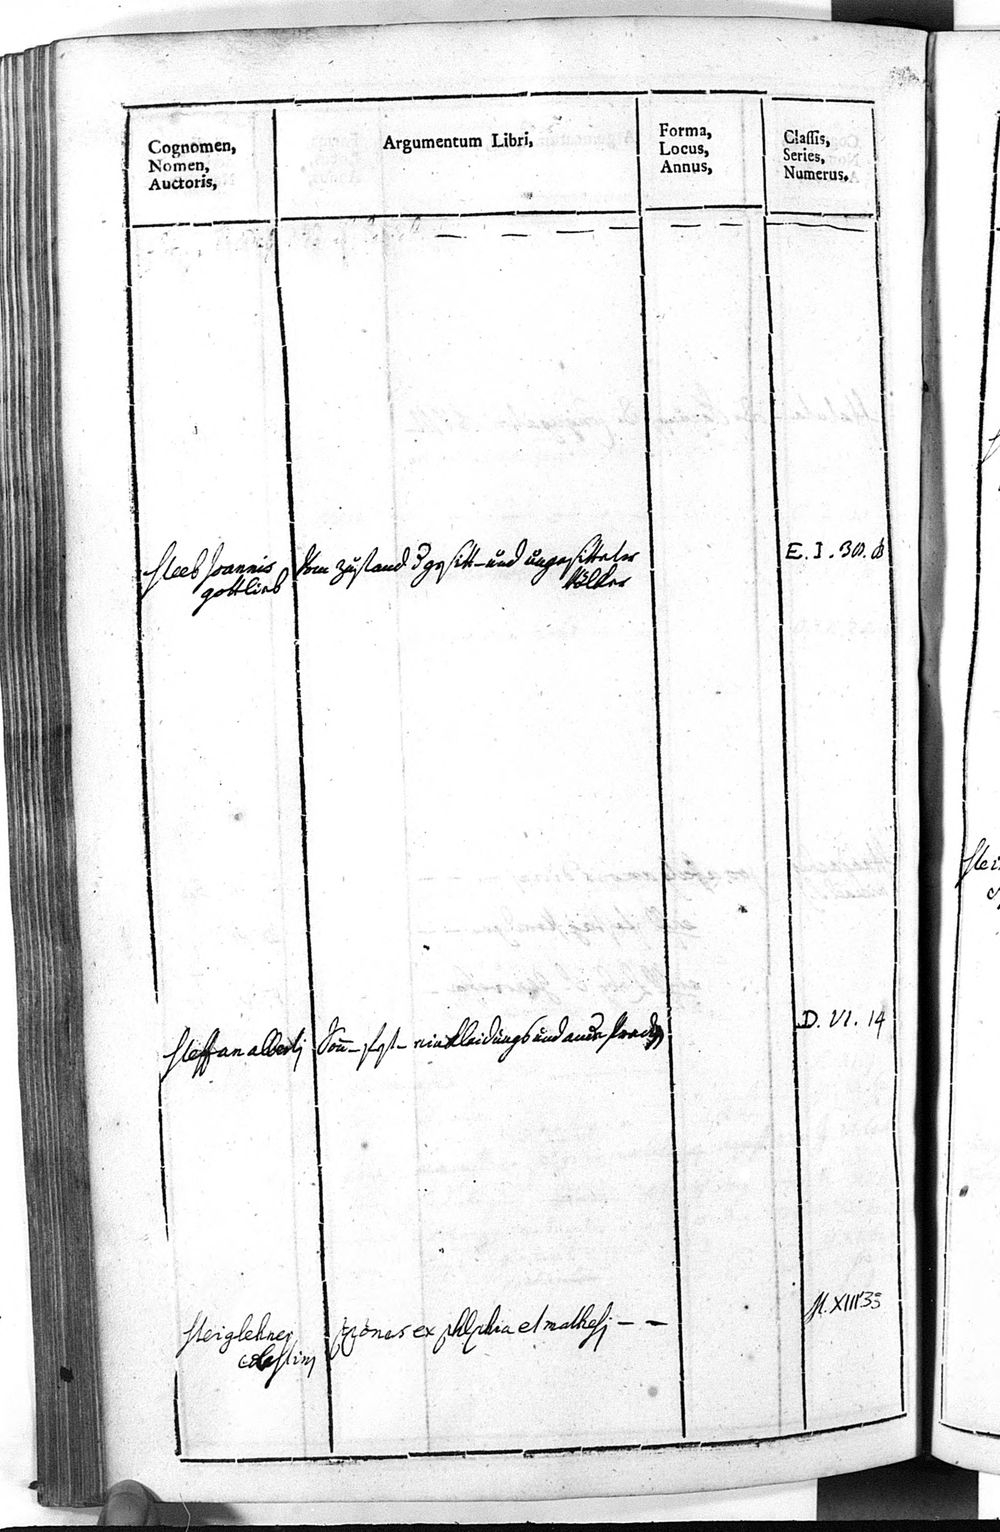 Cognomen,
Nomen,
Auctoris,
Argumentum Libri,
Forma,
Locus,
Annus,
Classis,
Series,
Numerus.
Steeb Joannis
gottlieb
Vom zustand gesitt- und ungesitteter
Völker
E. I. 30.
Steffan alberti
Son- fest- einkleidungs und andere
D. VI. 14
Steiglehner
celestin
ex et mathesi - -
M. XIII 33